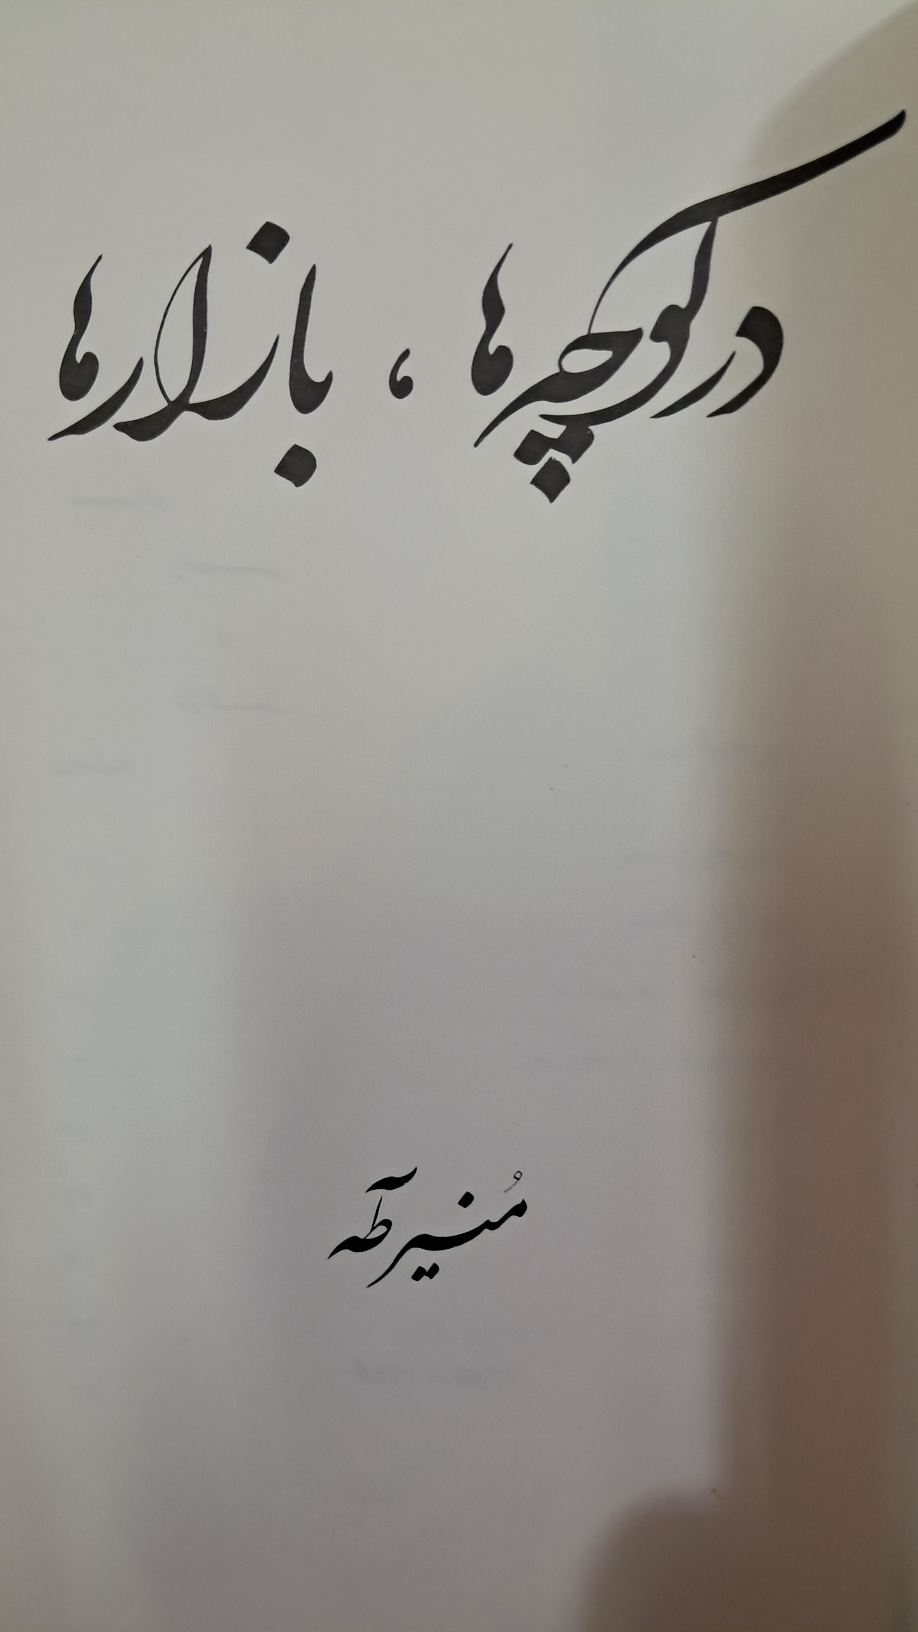 در کوچه‌ها، بازارها
مُنیر طٰه